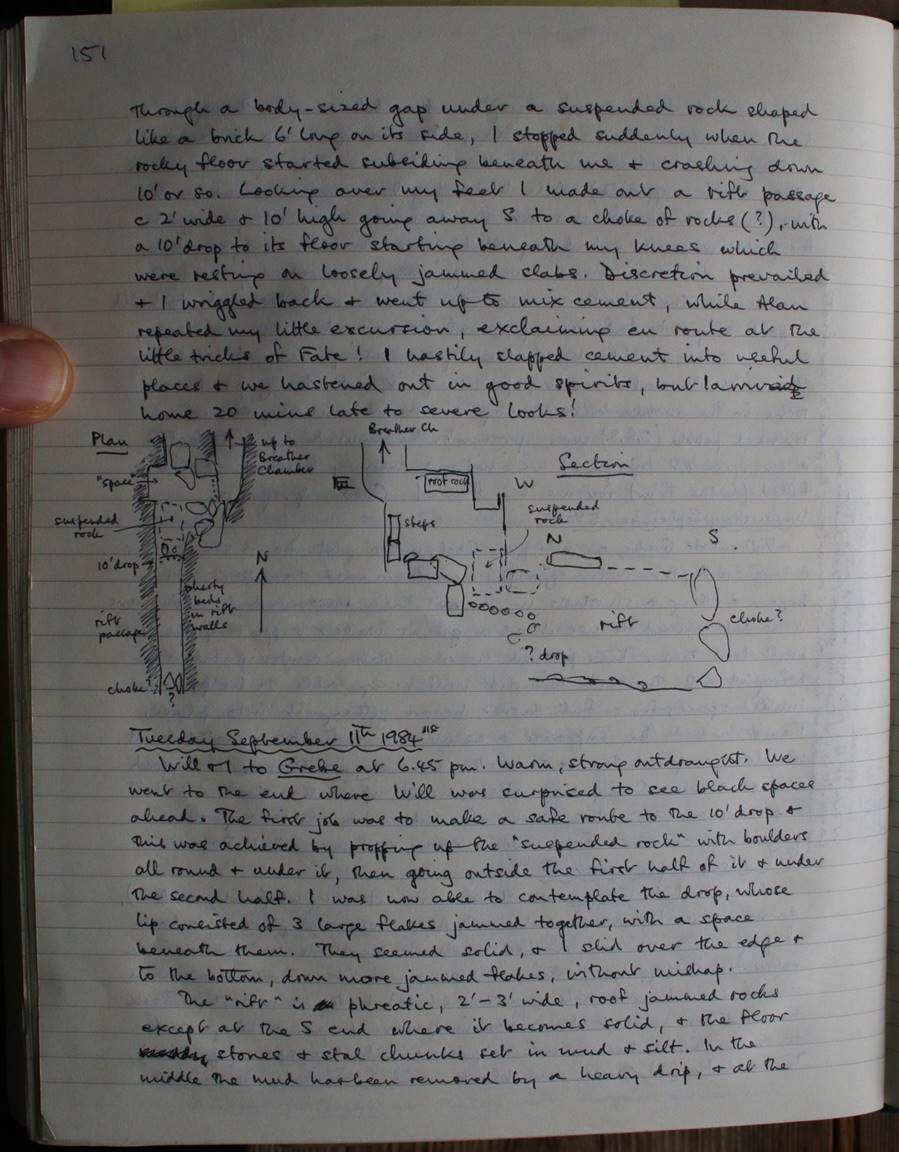 151
through a body-sized gap under a suspended rock shaped
like a brick 6' long on its side, I stopped suddenly when the
rocky floor started subsiding beneath me & crashing down
10' or so. Looking over my feet I made out a rift passage
c 2' wide & 10' high going away S to a choke of rocks (?), with
a 10' drop to its floor starting beneath my knees which
were resting on loosely jammed slabs. Discretion prevailed
& I wriggled back & went up to mix cement, while Alan
repeated my little excursion, exclaiming en route at the
little tricks of Fate! I hastily slapped cement into useful
places & we hastened out in good spirits, but I arrived
home 20 mins late to severe looks!
Plan
"space"
suspended
rock
10' drop
rift
passage
choke?
?
up to
Breather
Chamber
N
cherty
beds
in rift
walls
Breather Ch
E
root rock
steps
W
Section
suspended
rock
N
S.
rift
choke?
? drop
Tuesday September 11th 1984
Will & I to Grebe at 6.45 pm. Warm, strong outdraught. We
went to the end where Will was surprised to see black spaces
ahead. The first job was to make a safe route to the 10' drop &
this was achieved by propping up the "suspended rock" with boulders
all round & under it, then going outside the first half of it & under
the second half. I was now able to contemplate the drop, whose
lip consisted of 3 large flakes jammed together, with a space
beneath them. They seemed solid, & I slid over the edge &
to the bottom, down more jammed flakes, without mishap.
The "rift" is phreatic, 2'-3' wide, roof jammed rocks
except at the S end where it becomes solid, & the floor
stones & stal chunks set in mud & silt. In the
middle the mud has been removed by a heavy drip, & at the